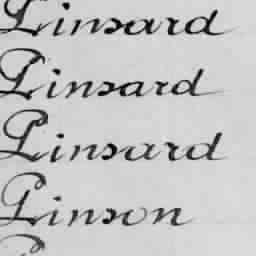 Pinsard
Pinsard
Pinsard
Pinson